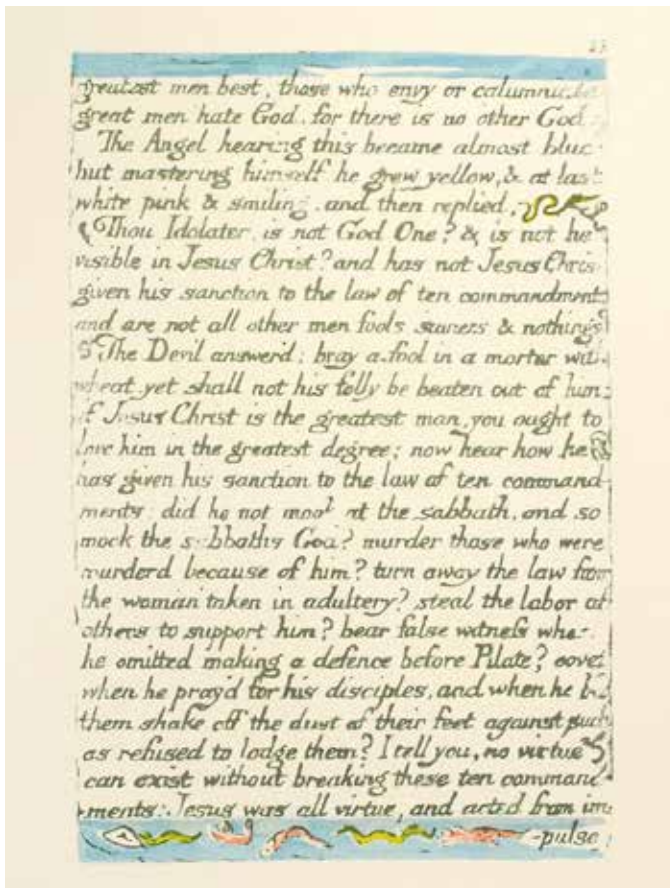 23
greatest men best, those who envy or calumniate
great men hate God, for there is no other God.
The Angel hearing this became almost blue
but mastering himself he grew yellow, & at last
white pink & smiling, and then replied,
Thou Idolater, is not God One? & is not he
visible in Jesus Christ? and has not Jesus Chris
given his sanction to the law of ten commandments
and are not all other men fools, sinners & nothings
The Devil answerd; bray a fool in a morter with
wheat, yet shall not his folly be beaten out of him:
if Jesus Christ is the greatest man, you ought to
love him in the greatest degree; now hear how he
has given his sanction to the law of ten command-
ments: did he not mock at the sabbath, and so
mock the sabbaths God? murder those who were
murderd because of him? turn away the law from
the woman taken in adultery? steal the labor of
others to support him? bear false witness when
he omitted making a defence before Pilate? covet
when he pray'd for his disciples, and when he bid
them shake off the dust of their feet against such
as refused to lodge them? I tell you, no virtue
can exist without breaking these ten command-
ments: Jesus was all virtue, and acted from im-
-pulse